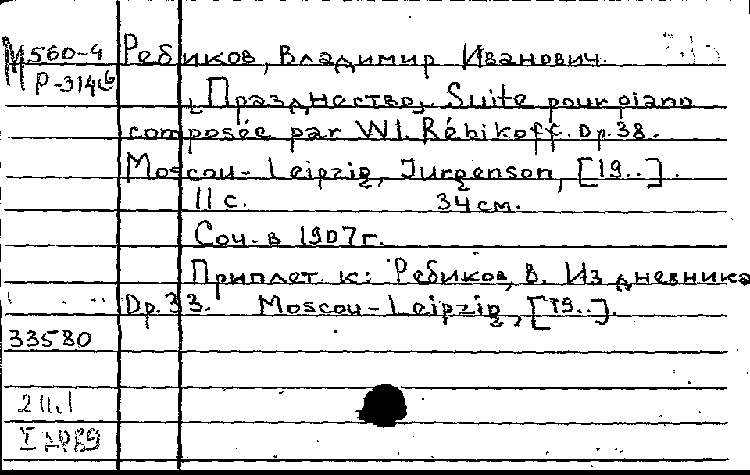 М560-4 Ребиков, Владимир Иванович.
Р-314б
„Празднество„ Suite pour piano
composée par Wl. Rébikoff. Op.38.
Moscou-Leipzig, Jurgenson, [19..].
11 с. 34 см.
Соч. в 1907 г.
Приплет. к: Ребиков, В. Из дневника
Op.33. Moscou-Leipzig, [19..].
33580